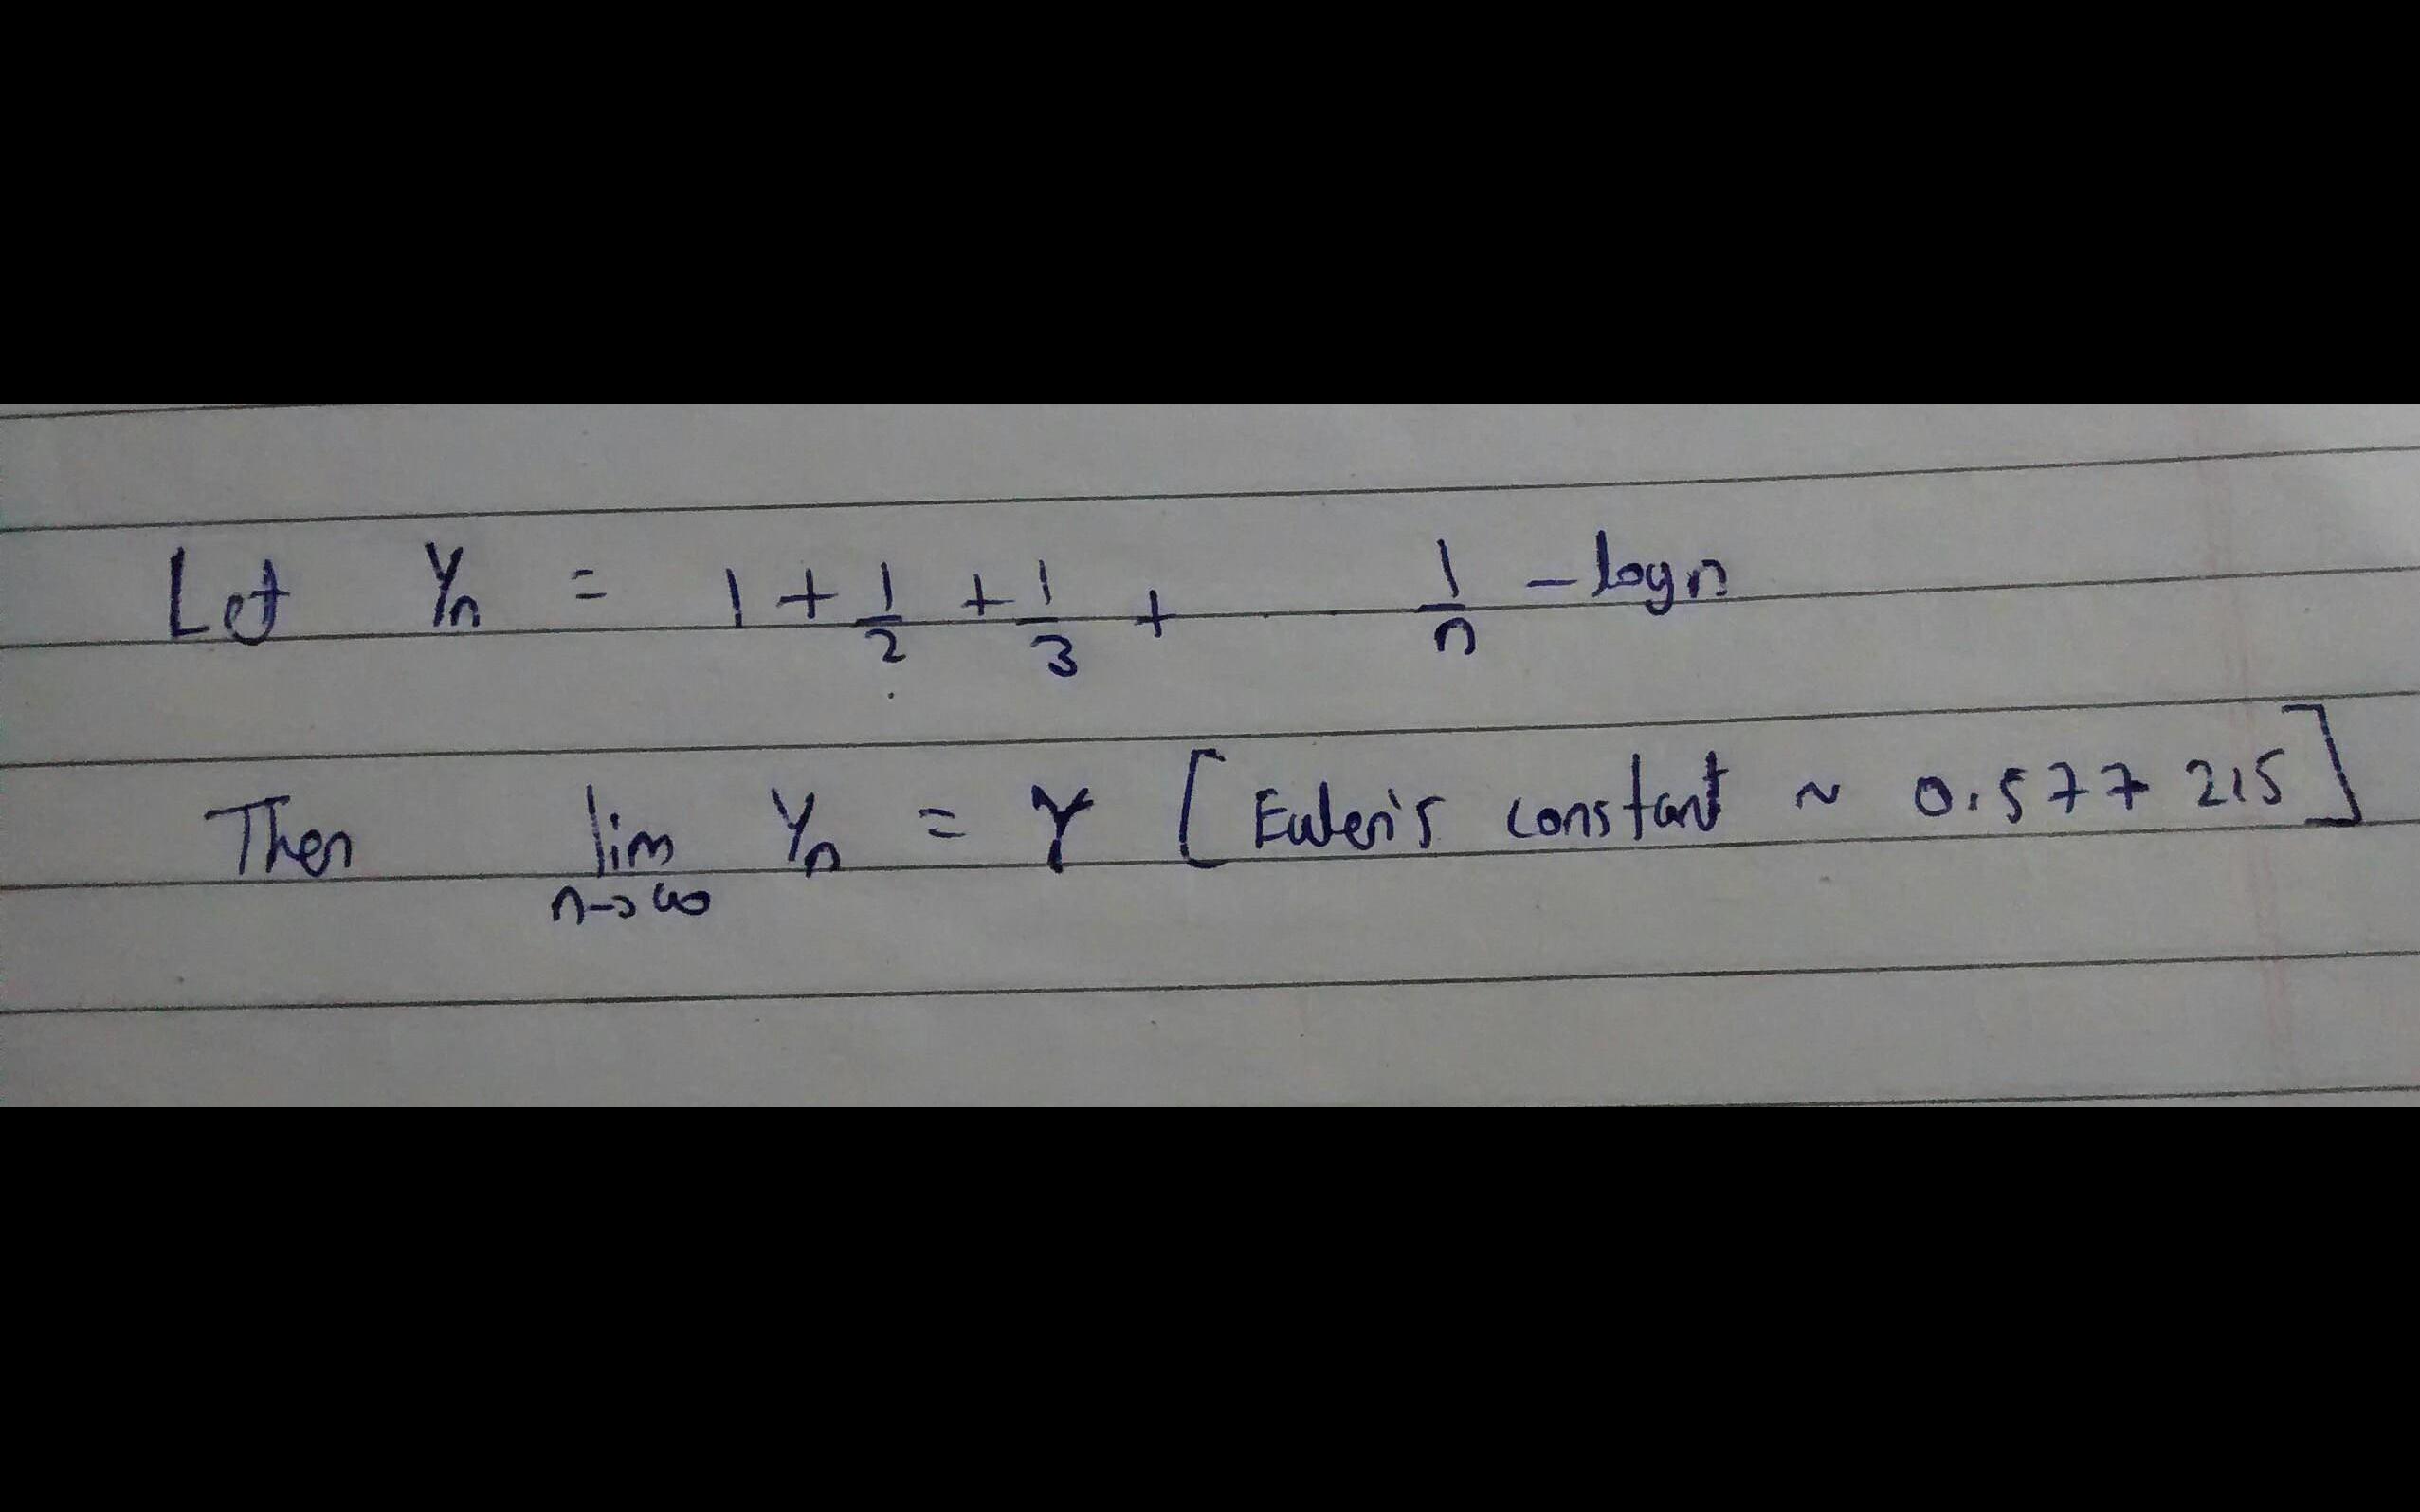 Let γₙ = 1 + 1/2 + 1/3 + 1/n - log n
Then lim n→∞ γₙ = γ [Euler's constant ~ 0.577 215]